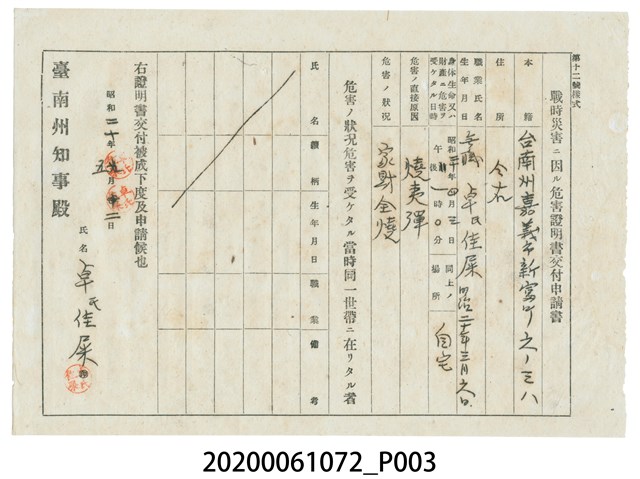 第十二號樣式
戰時災害ニ因ル危害證明書交付申請書
本籍 台南州嘉義市新富町
住所 仝右
職業氏名 卓氏佳屎
生年月日 明治二十年三月
身体生命又ハ財產ニ危害ヲ受ケタル日時 昭和二十年四月三日 午後一時〇分
同上ノ場所 自宅
危害ノ直接原因 燒夷彈
危害ノ狀況 家財全燒
危害ノ狀況危害ヲ受ケタル當時同一世帶ニ在リタル者
氏名 續柄 生年月日 職業 備考
右證明書交付被成下度及申請候也
昭和二十年
臺南州知事殿
氏名 卓氏佳屎
20200061072_P003